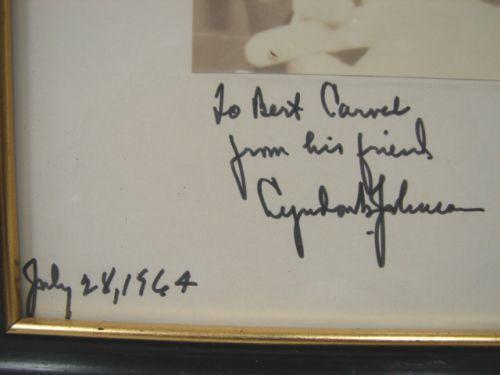 To Bert Carvel
from his friend
Lyndon B. Johnson
July 28, 1964